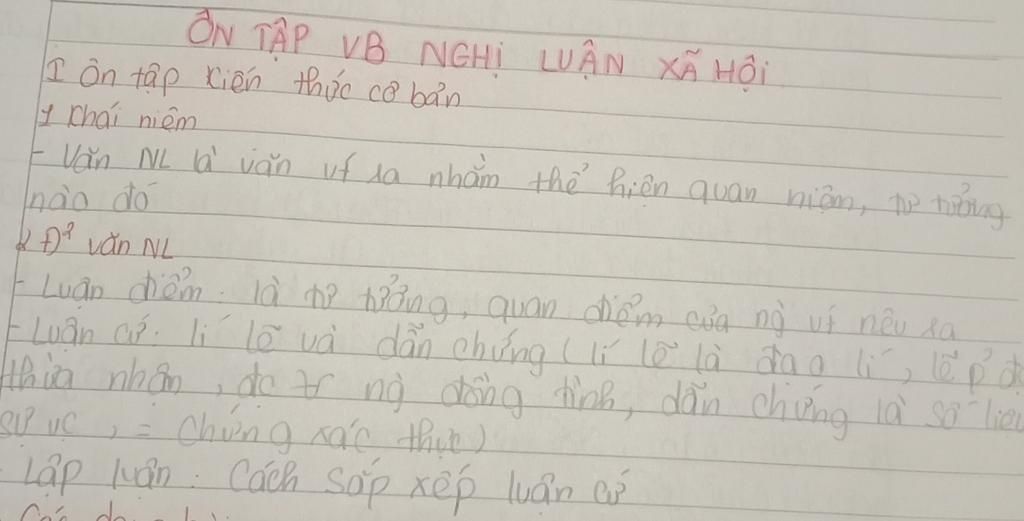 ÔN TẬP VB NGHỊ LUẬN XÃ HỘI
I Ôn tập kiến thức cơ bản
1 Khái niệm
- Văn NL là văn vt ra nhằm thể hiện quan niệm, tư tưởng
nào đó
2 Đ² văn NL
- Luận điểm: là tư tưởng, quan điểm của ng vt nêu ra
- Luận cứ: lí lẽ và dẫn chứng (lí lẽ là đạo lí, lẽ p² đ
thừa nhận, đc ng đồng tình, dẫn chứng là số liệu
sự vc, = chứng xác thực)
Lập luận: Cách sắp xếp luận cứ